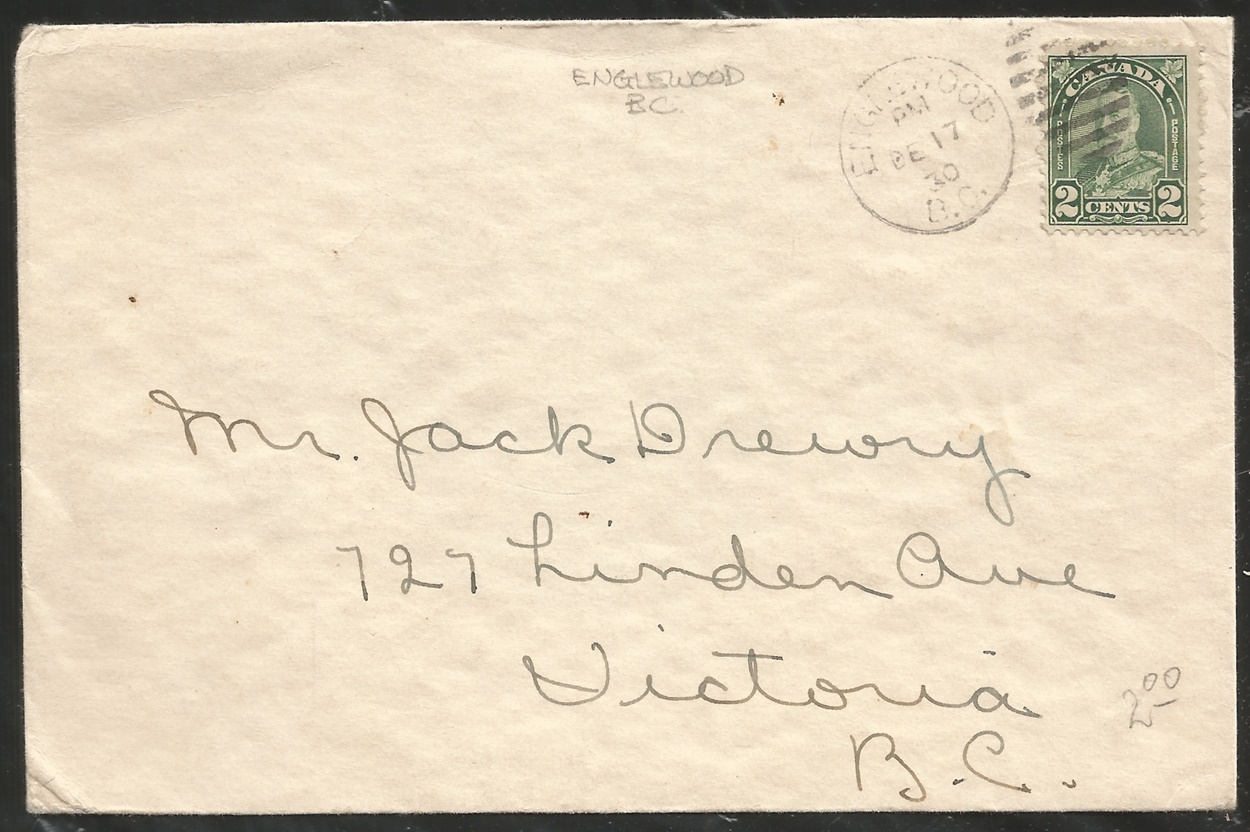 ENGLEWOOD
B.C.
ENGLEWOOD
PM
DE 17
30
B.C.
CANADA
POSTES
POSTAGE
2 CENTS 2
Mr. Jack Drewry
727 Linden Ave
Victoria
B.C.
2.00